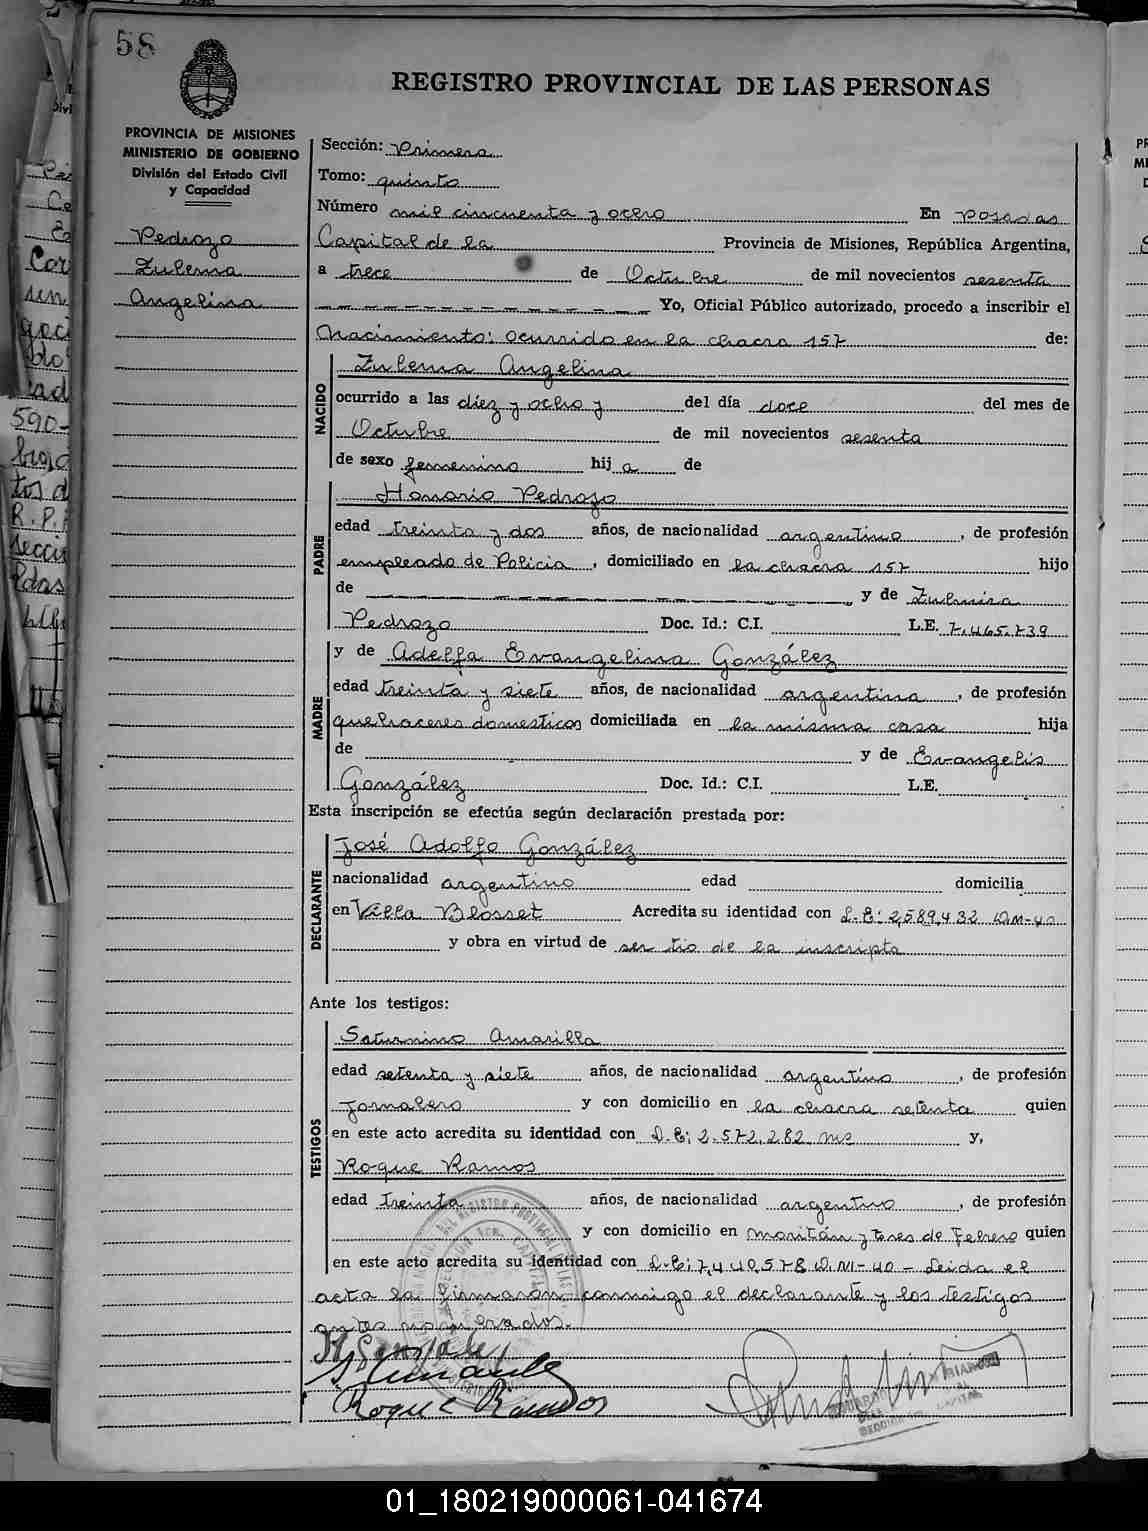 58
REGISTRO PROVINCIAL DE LAS PERSONAS
PROVINCIA DE MISIONES
MINISTERIO DE GOBIERNO
División del Estado Civil
y Capacidad
Pedrozo
Zulema
Angelina
Sección: Primera
Tomo: quinto
Número mil cincuenta y ocho En Posadas
Capital de la Provincia de Misiones, República Argentina,
a trece de Octubre de mil novecientos sesenta
Yo, Oficial Público autorizado, procedo a inscribir el
Nacimiento: ocurrido en la chacra 157 de:
NACIDO
Zulema Angelina
ocurrido a las diez y ocho y del día doce del mes de
Octubre de mil novecientos sesenta
de sexo femenino hija de
PADRE
Honorio Pedrozo
edad treinta y dos años, de nacionalidad argentino, de profesión
empleado de Policia, domiciliado en la chacra 157 hijo
de y de Zulmira
Pedrozo Doc. Id.: C.I. L.E. 7.465.739
MADRE
y de Adelfa Evangelina González
edad treinta y siete años, de nacionalidad argentina, de profesión
quehaceres domesticos domiciliada en la misma casa hija
de y de Evangelis
González Doc. Id.: C.I. L.E.
Esta inscripción se efectúa según declaración prestada por:
DECLARANTE
José Adolfo González
nacionalidad argentino edad domicilia
en Villa Blosset Acredita su identidad con L.E: 2,589,432 D.M-40
y obra en virtud de ser tio de la inscripta
Ante los testigos:
TESTIGOS
Saturnino Amarilla
edad setenta y siete años, de nacionalidad argentino, de profesión
Jornalero y con domicilio en la chacra setenta quien
en este acto acredita su identidad con L.E: 2.572.282 y,
Roque Ramos
edad treinta años, de nacionalidad argentino, de profesión
y con domicilio en y tres de Febrero quien
en este acto acredita su identidad con L.E: 7,440,578 D.M-40 - Leida el
acta la firmaron conmigo el declarante y los testigos
antes nomerados.
Roque Ramos
01_180219000061-041674